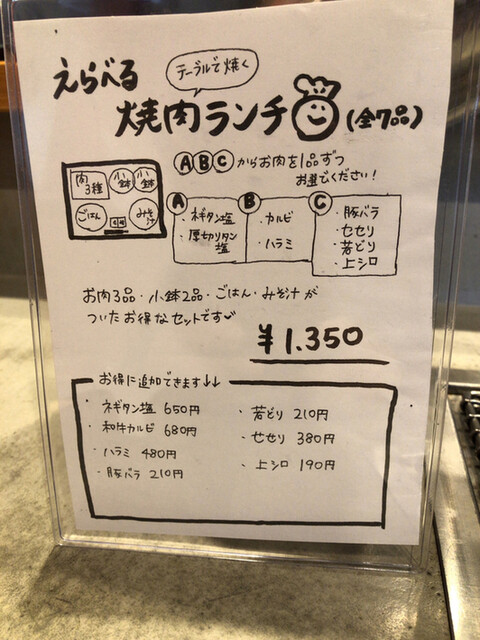 えらべる
テーブルで焼く
焼肉ランチ(全7品)
ABCからお肉を1品ずつ
お選びください!
肉3種 小鉢 小鉢
ごはん みそ汁
A
・ネギタン塩
・厚切りタン塩
B
・カルビ
・ハラミ
C
・豚バラ
・セセリ
・若どり
・上シロ
お肉3品・小鉢2品・ごはん・みそ汁が
ついたお得なセットです
¥1.350
お得に追加できます↓↓
・ネギタン塩 650円
・和牛カルビ 680円
・ハラミ 480円
・豚バラ 210円
・若どり 210円
・セセリ 380円
・上シロ 190円